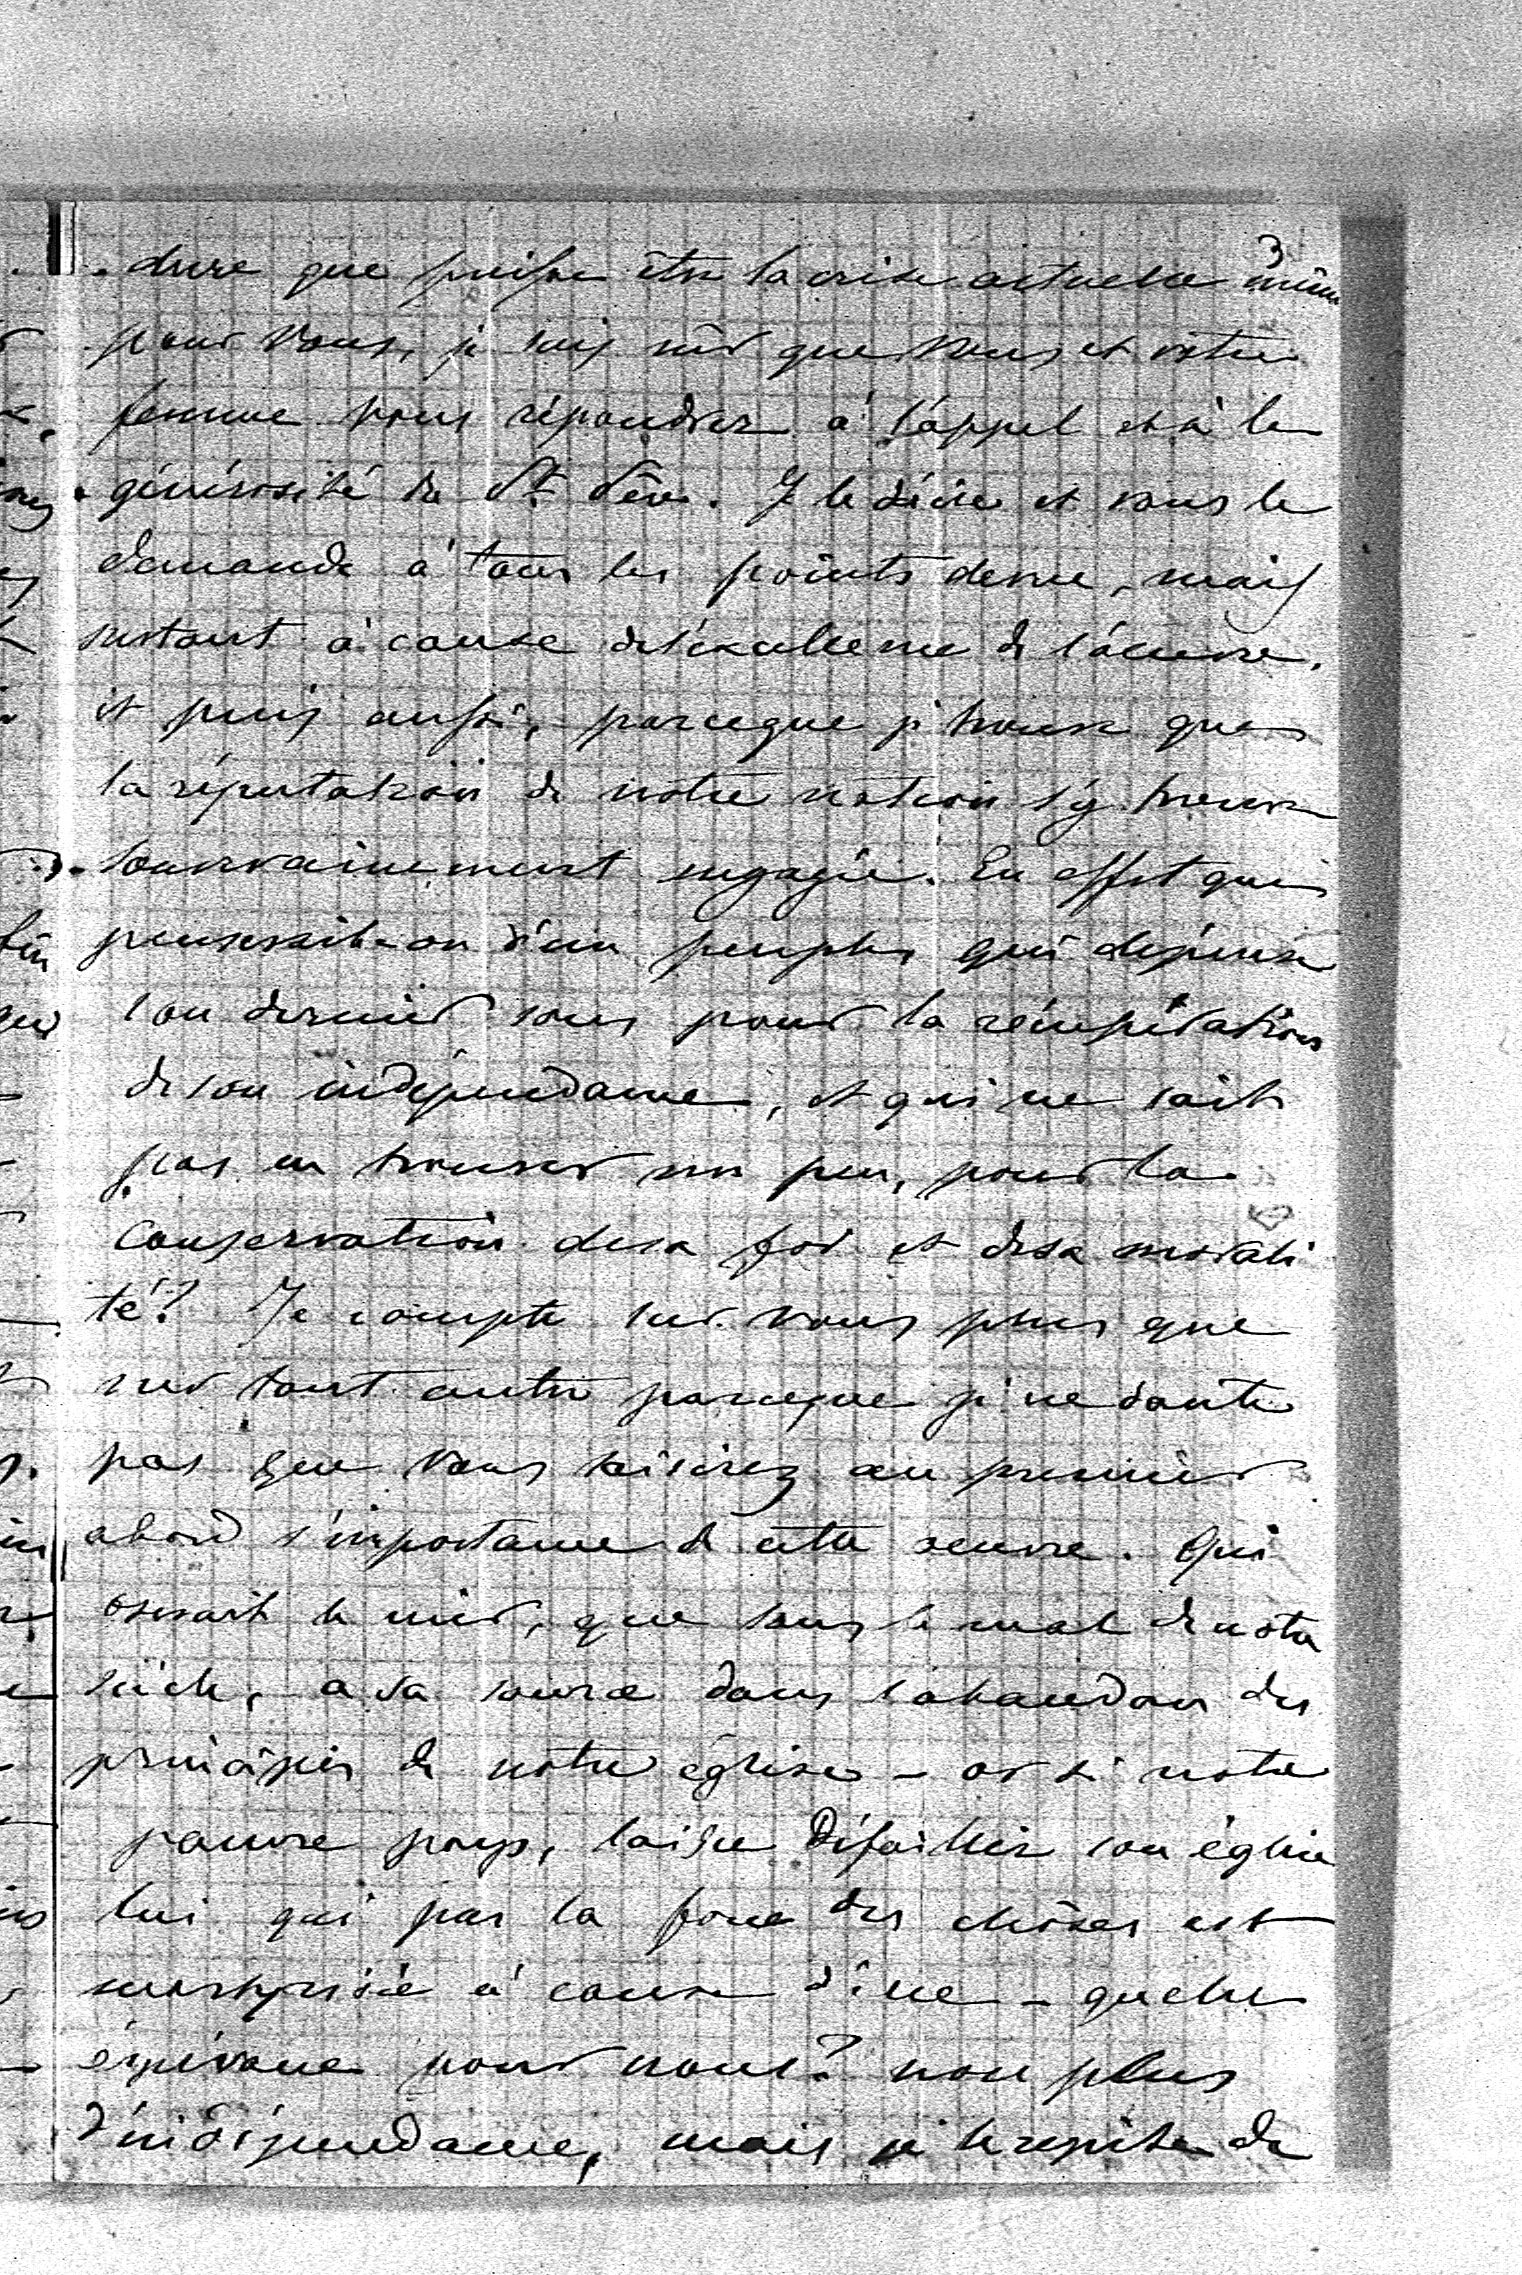 3
dure que puisse être la crise actuelle même
pour vous, je suis sûr que vous et votre
femme vous répondrez à l'appel et à la
générosité du St Père. Je le désire et vous le
demande à tous les points de vue, mais
surtout à cause de l'excellence de l'œuvre.
et puis aussi, parceque je trouve que
la réputation de notre nation s'y trouve
souverainement engagée. En effet que
penserait-on d'un peuple qui dépense
son dernier sous pour la récupération
de son indépendance, et qui ne sait
pas en trouver un peu, pour la
conservation de sa foi et de sa morali
té? Je compte sur vous plus que
sur tout autre parceque je ne doute
pas que vous saisirez au premier
abord l'importance de cette œuvre. Qui
oserait le nier, que tous le mal de notre
siècle, a sa source dans l'abandon des
principes de notre église - or si notre
pauvre pays, laisse défaillir son église
lui qui par la force des choses est
martyrisé à cause d'elle - quelle
espérance pour nous? non plus
d'indépendance, mais le respect de